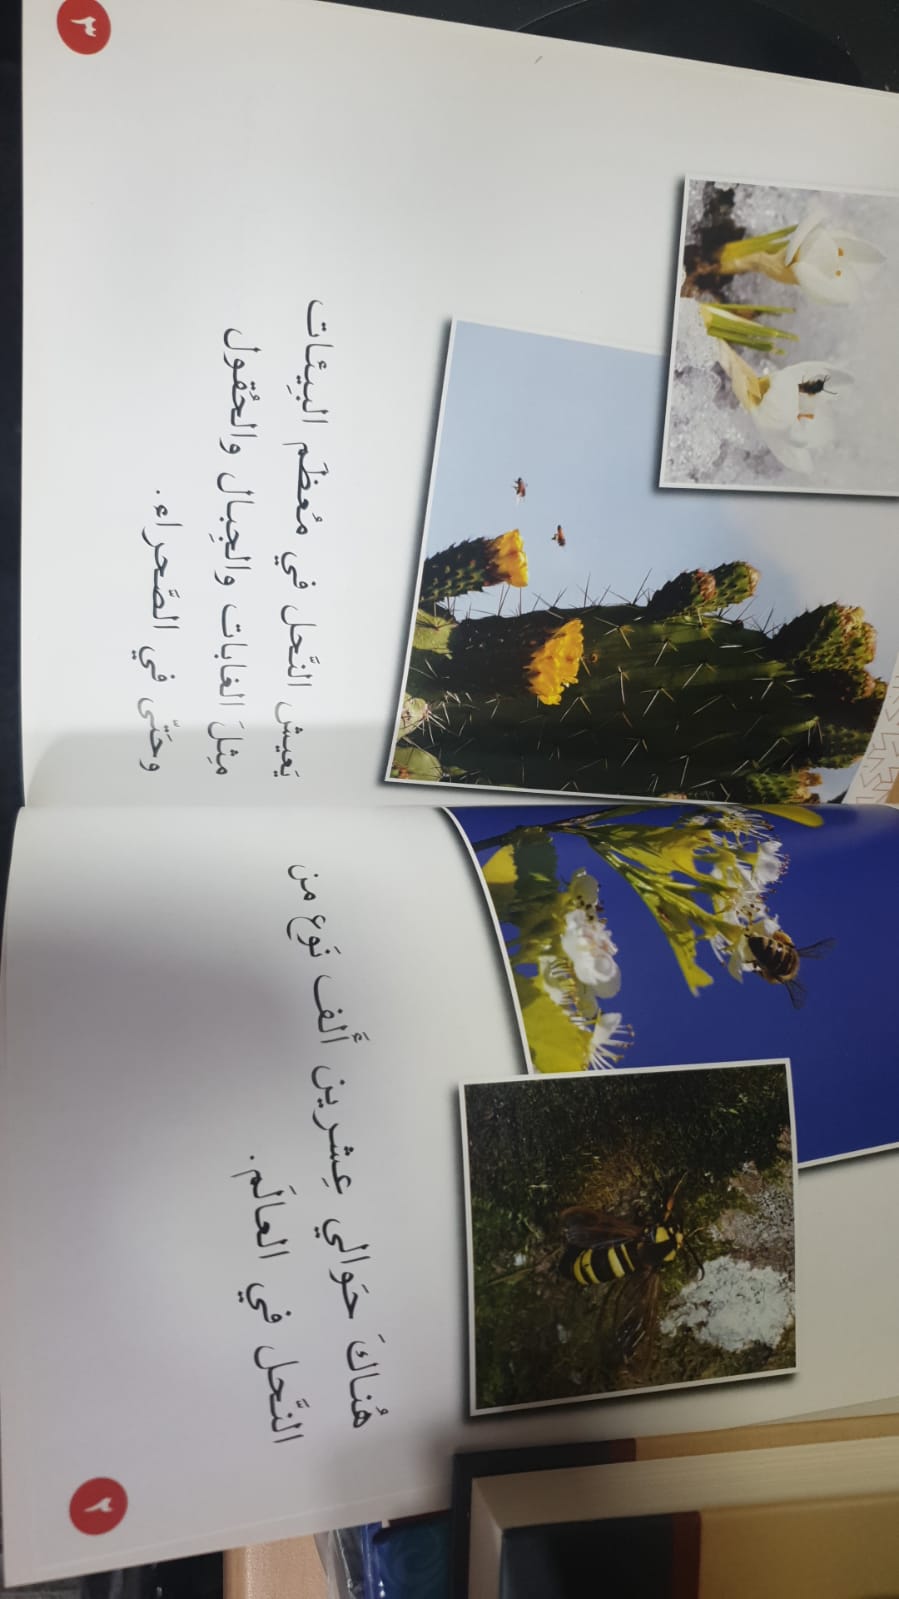 هُناكَ حَوالي عِشرين أَلف نَوع من
النَّحل في العالَم.
٢
يَعيش النَّحل في مُعظَم البيئات
مِثلَ الغابات والجِبال والحُقول
وحَتّى في الصَّحراء.
٣